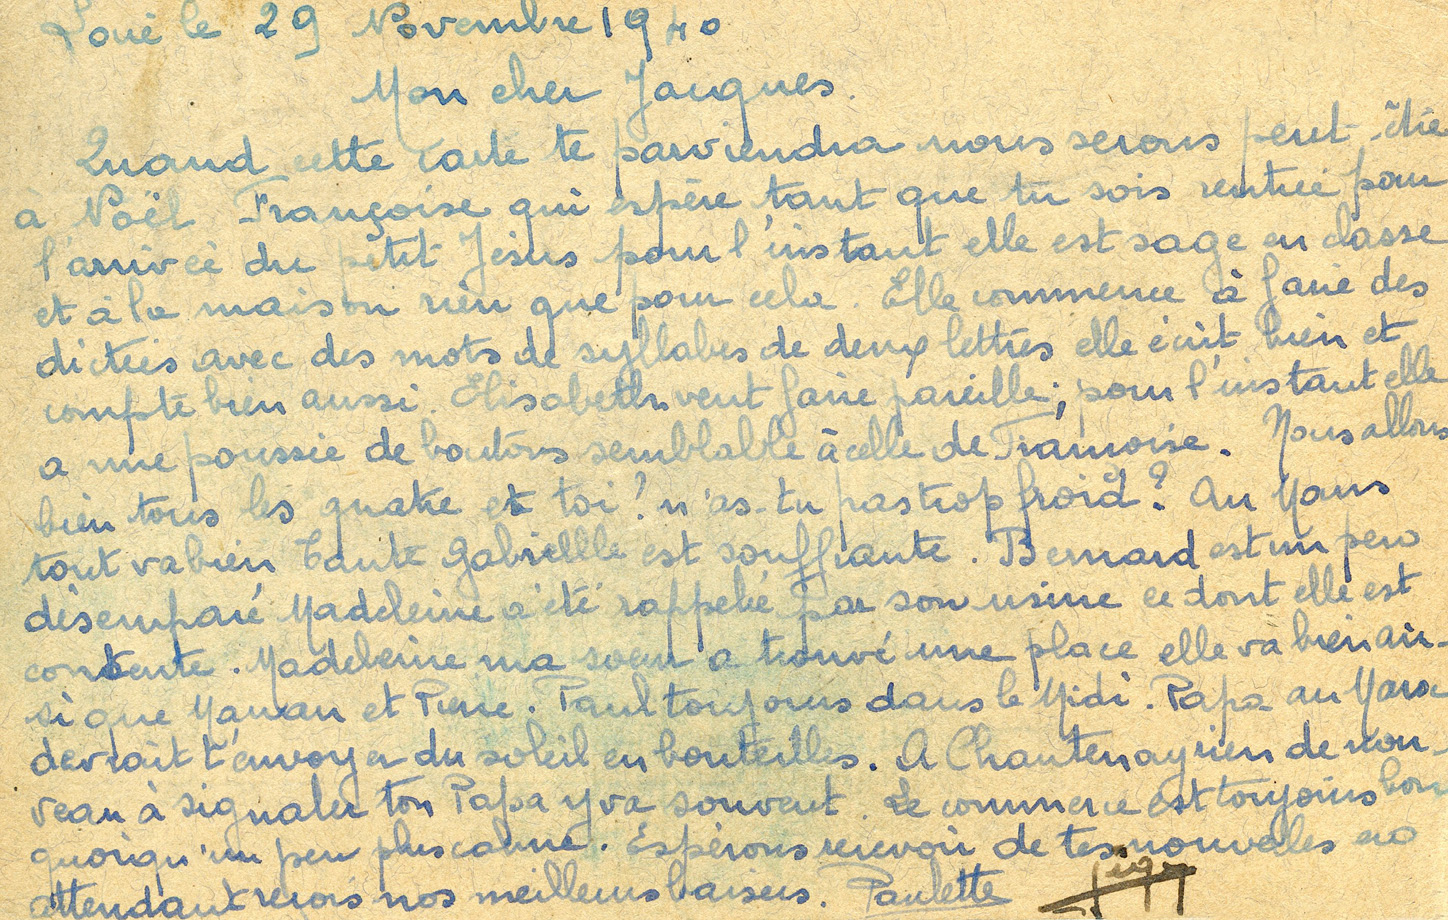 Loué le 29 Novembre 1940
Mon cher Jacques.
Quand cette carte te parviendra nous serons peut-être
à Noël Françoise qui espère tant que tu sois rentrée pour
l'arrivée du petit Jésus pour l'instant elle est sage en classe
et à la maison rien que pour cela. Elle commence à faire des
dictées avec des mots de syllabes de deux lettres elle écrit bien et
compte bien aussi. Elisabeth veut faire pareille; pour l'instant elle
a une poussée de boutons semblable à celle de Françoise. Nous allons
bien tous les quatre et toi? n'as-tu pas trop froid? Au Mans
tout va bien Tante Gabriellle est souffrante. Bernard est un peu
désemparé Madeleine a été rappelée par son usine ce dont elle est
contente. Madeleine ma sœur a trouvé une place elle va bien ain-
si que Maman et Pierre. Paul toujours dans le Midi. Papa au Maroc
devrait t'envoyer du soleil en bouteilles. A Chantenay rien de nou-
veau à signaler ton Papa y va souvent. Le commerce est toujours bon
quoiqu'un peu plus calme. Espérons recevoir de tes nouvelles en
attendant reçois nos meilleurs baisers. Paulette